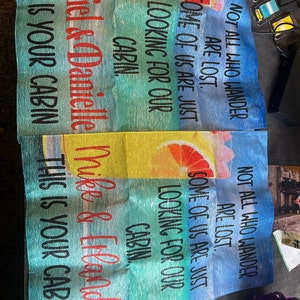 NOT ALL WHO WANDER
ARE LOST.
SOME OF US ARE JUST
LOOKING FOR OUR
CABIN.
& Danielle
IS YOUR CABIN
NOT ALL WHO WANDER
ARE LOST.
SOME OF US ARE JUST
LOOKING FOR OUR
CABIN.
Mike &
THIS IS YOUR CAB